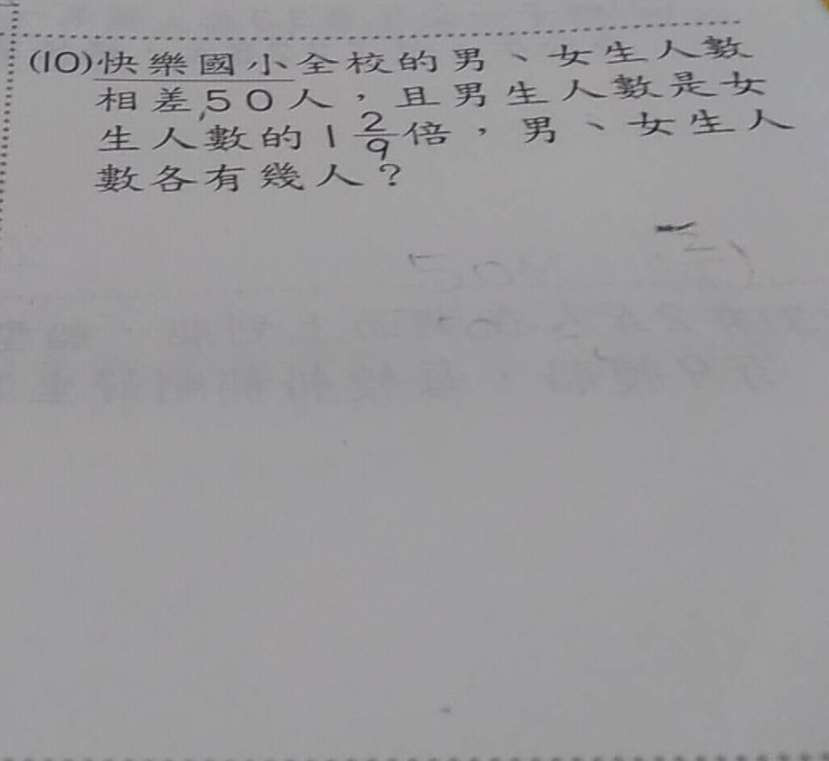 (10)快樂國小全校的男、女生人數
相差50人，且男生人數是女
生人數的1 2/9倍，男、女生人
數各有幾人？